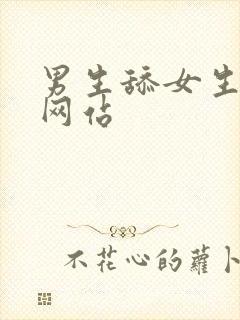 男生舔女生
网佔
不花心的蘿卜